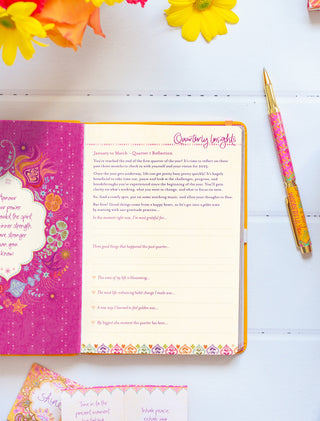 Quarterly Insights
January to March - Quarter 1 Reflection
You've reached the end of the first quarter of the year! It's time to reflect on these
past three months to check in with yourself and your vision for 2023.
Once the year gets underway, life can get pretty busy pretty quickly! It's hugely
beneficial to take time out, pause and look at the challenges, progress, and
breakthroughs you've experienced since the beginning of the year. You'll gain
clarity on what's working, what you want to change, and what to focus on next.
So, find a comfy spot, put on some soothing music, and allow your thoughts to flow
But first! Good things come from a happy heart, so let's get into a
by starting with our gratitude practice...
In the moment right now, I'm most grateful for...
Three good things that happened the past quarter...
This area of my life is blossoming...
The most life-enhancing habit change I made was...
A new way I learned to feel golden was...
My biggest aha moment this quarter has been...
power
the spirit
strength.
stronger
you
know
Tune in to the
present moment
Inhale peace,
exhale